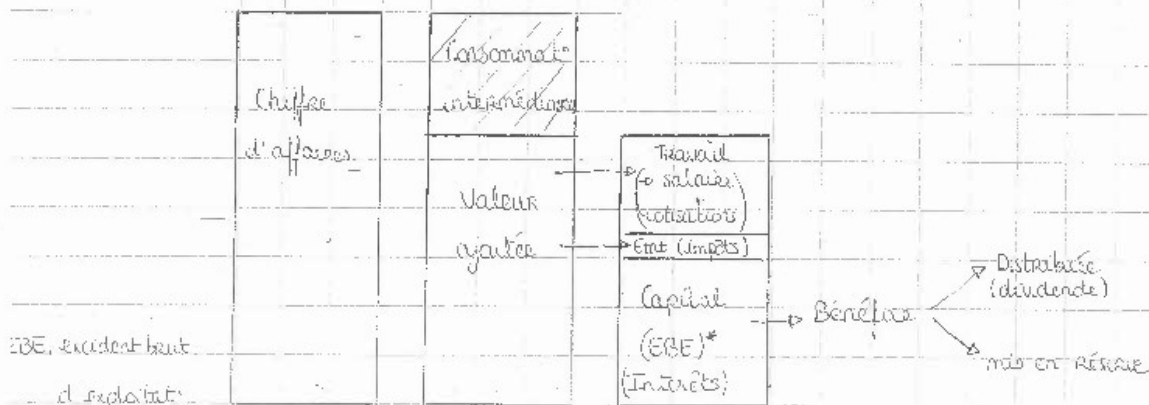 Chiffre
d'affaires
Consommat°
intermédiaire
Valeur
ajoutée
Travail
(→ salaire
cotisations)
Etat (impôts)
Capital
(EBE)*
(Intérêts)
Bénéfice
Distribuée
(dividende)
mis en RÉSERVE
EBE, excédent brut
d'exploitat°